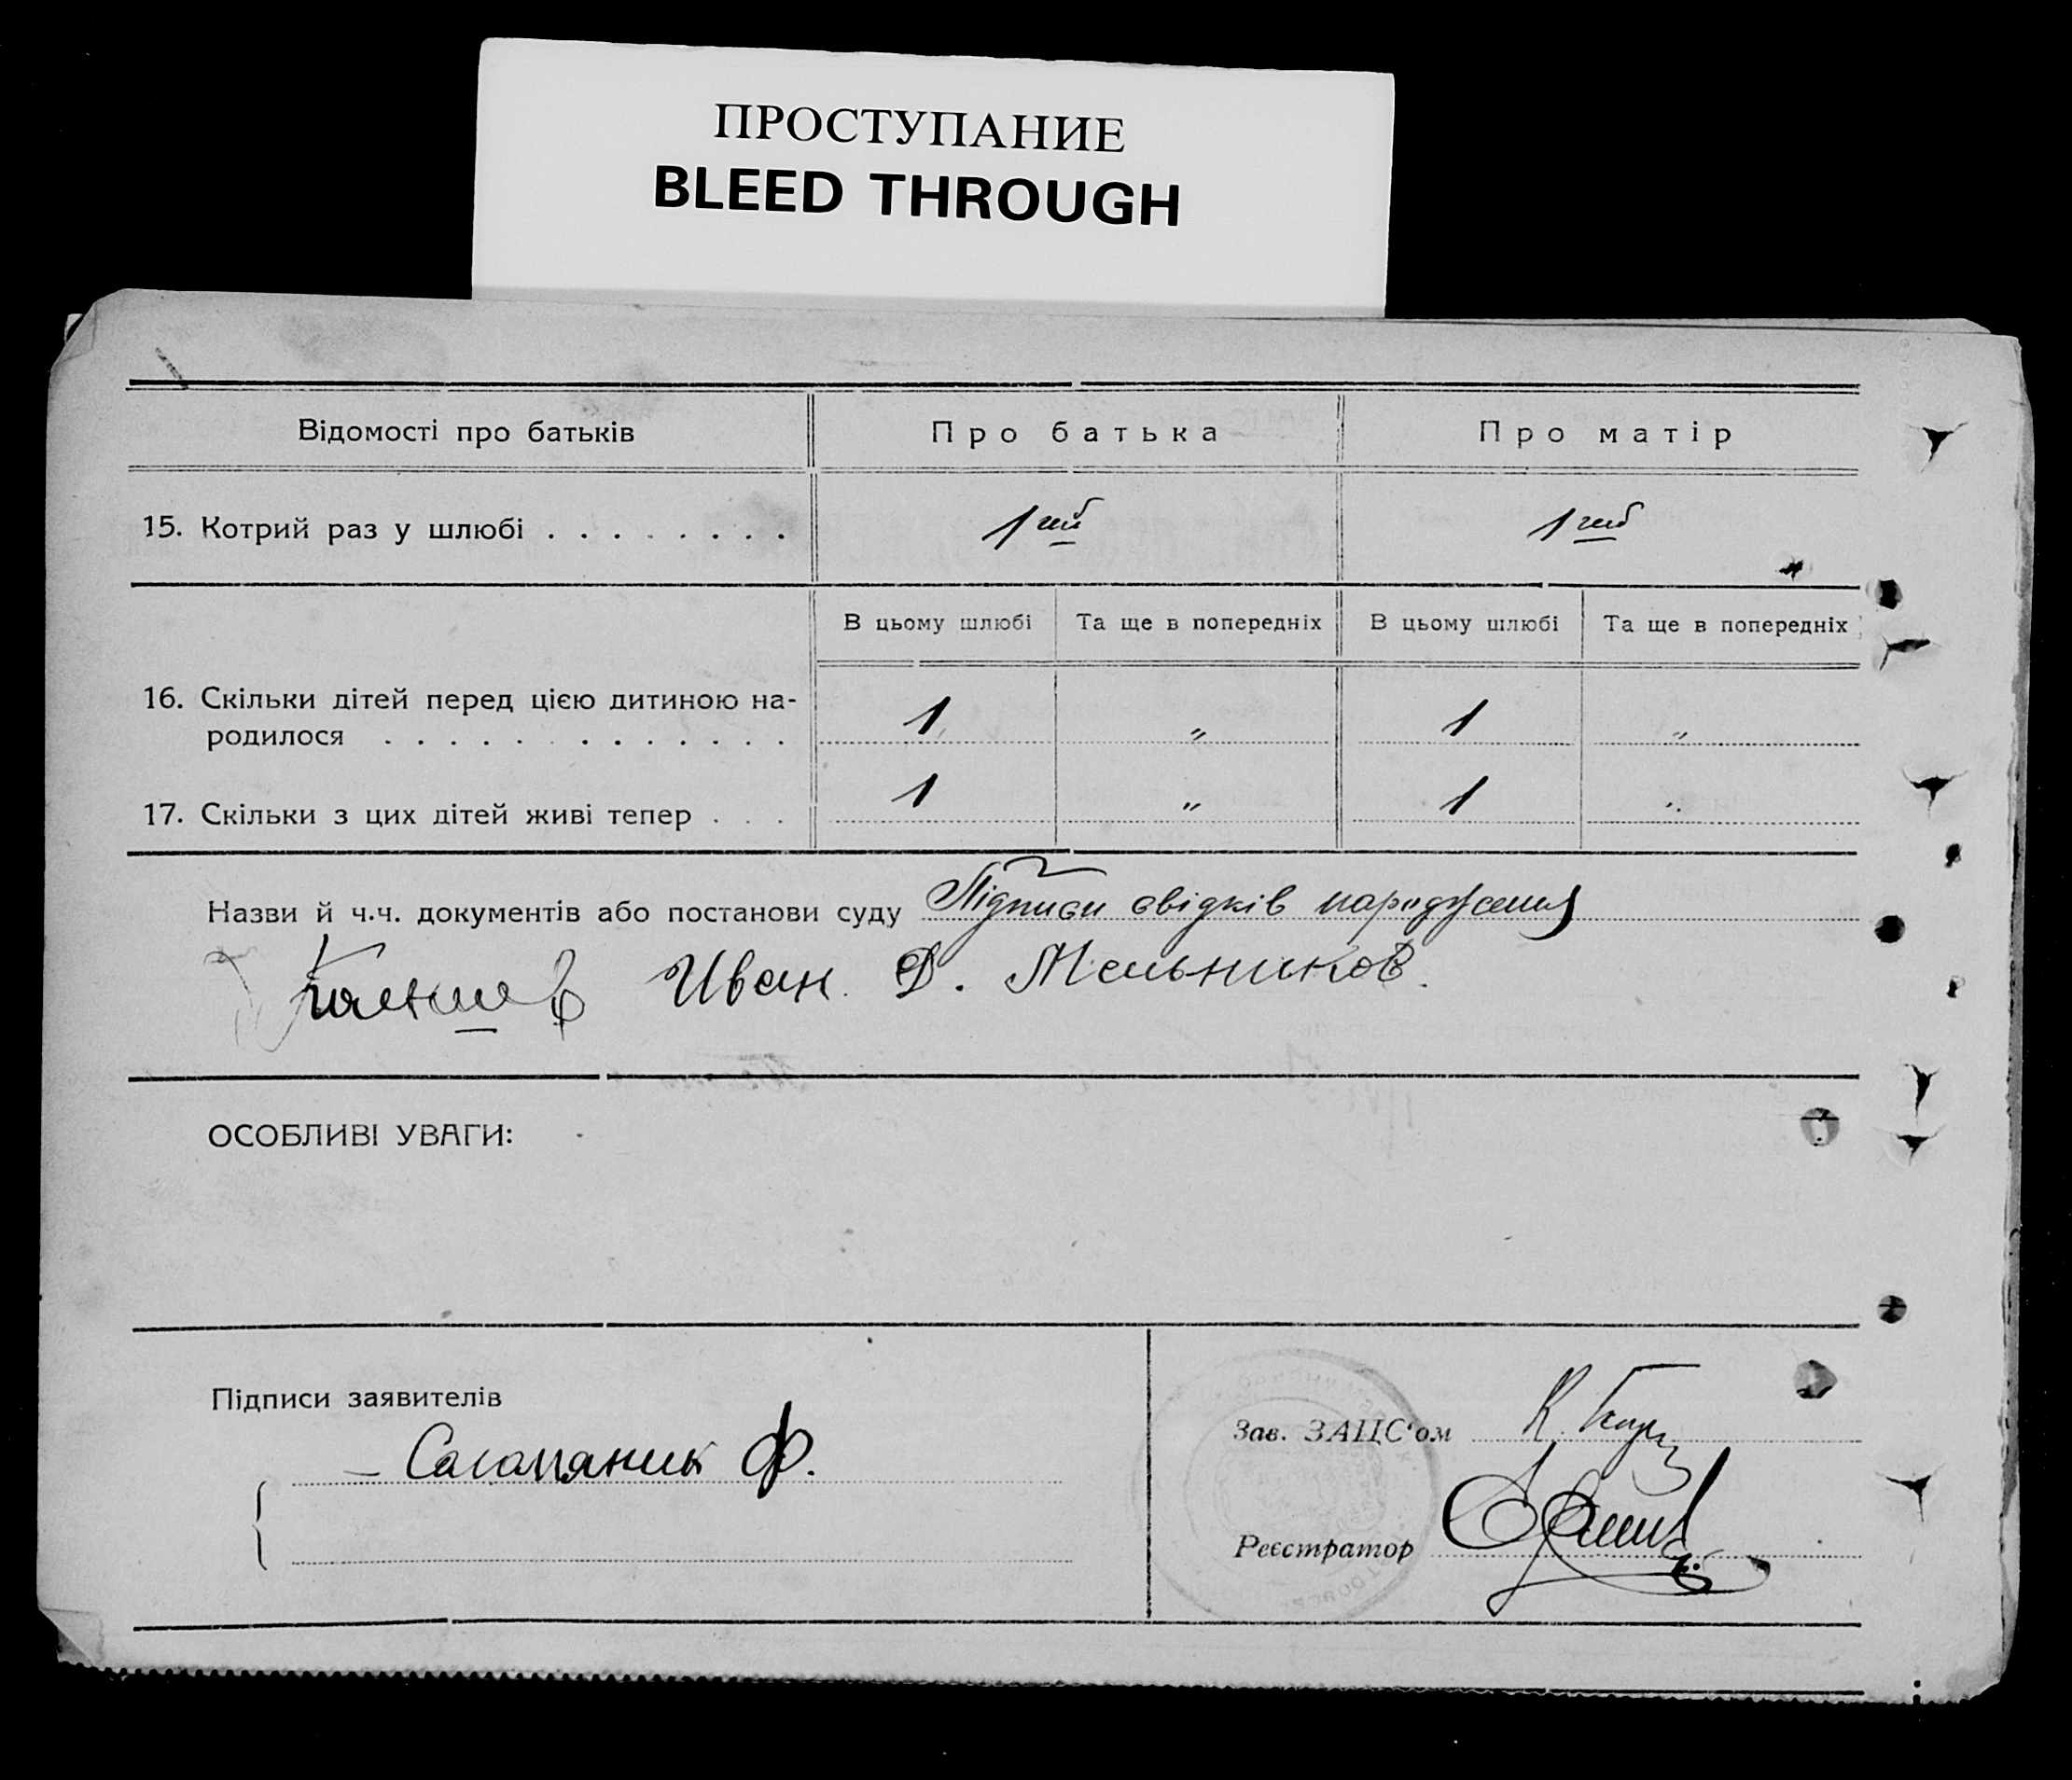 ПРОСТУПАНИЕ
BLEED THROUGH
Відомості про батьків Про батька Про матір
15. Котрий раз у шлюбі . . . . . . . . 1ий 1ий
В цьому шлюбі Та ще в попередніх В цьому шлюбі Та ще в попередніх
16. Скільки дітей перед цією дитиною на-
родилося . . . . . . . . . . . . . 1 „ 1 „
17. Скільки з цих дітей живі тепер . . . 1 „ 1 „
Назви й ч.ч. документів або постанови суду Підписи свідків народження
Иван. Ф. Мельников.
ОСОБЛИВІ УВАГИ:
Підписи заявителів
Зав. ЗАЦС‘ом К.
Ф.
Реєстратор